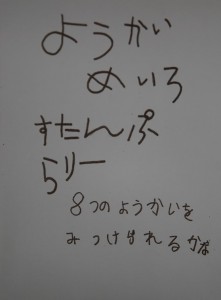 ようかい
めいろ
すたんぷ
らリー
8つのようかいを
みつけられるかな